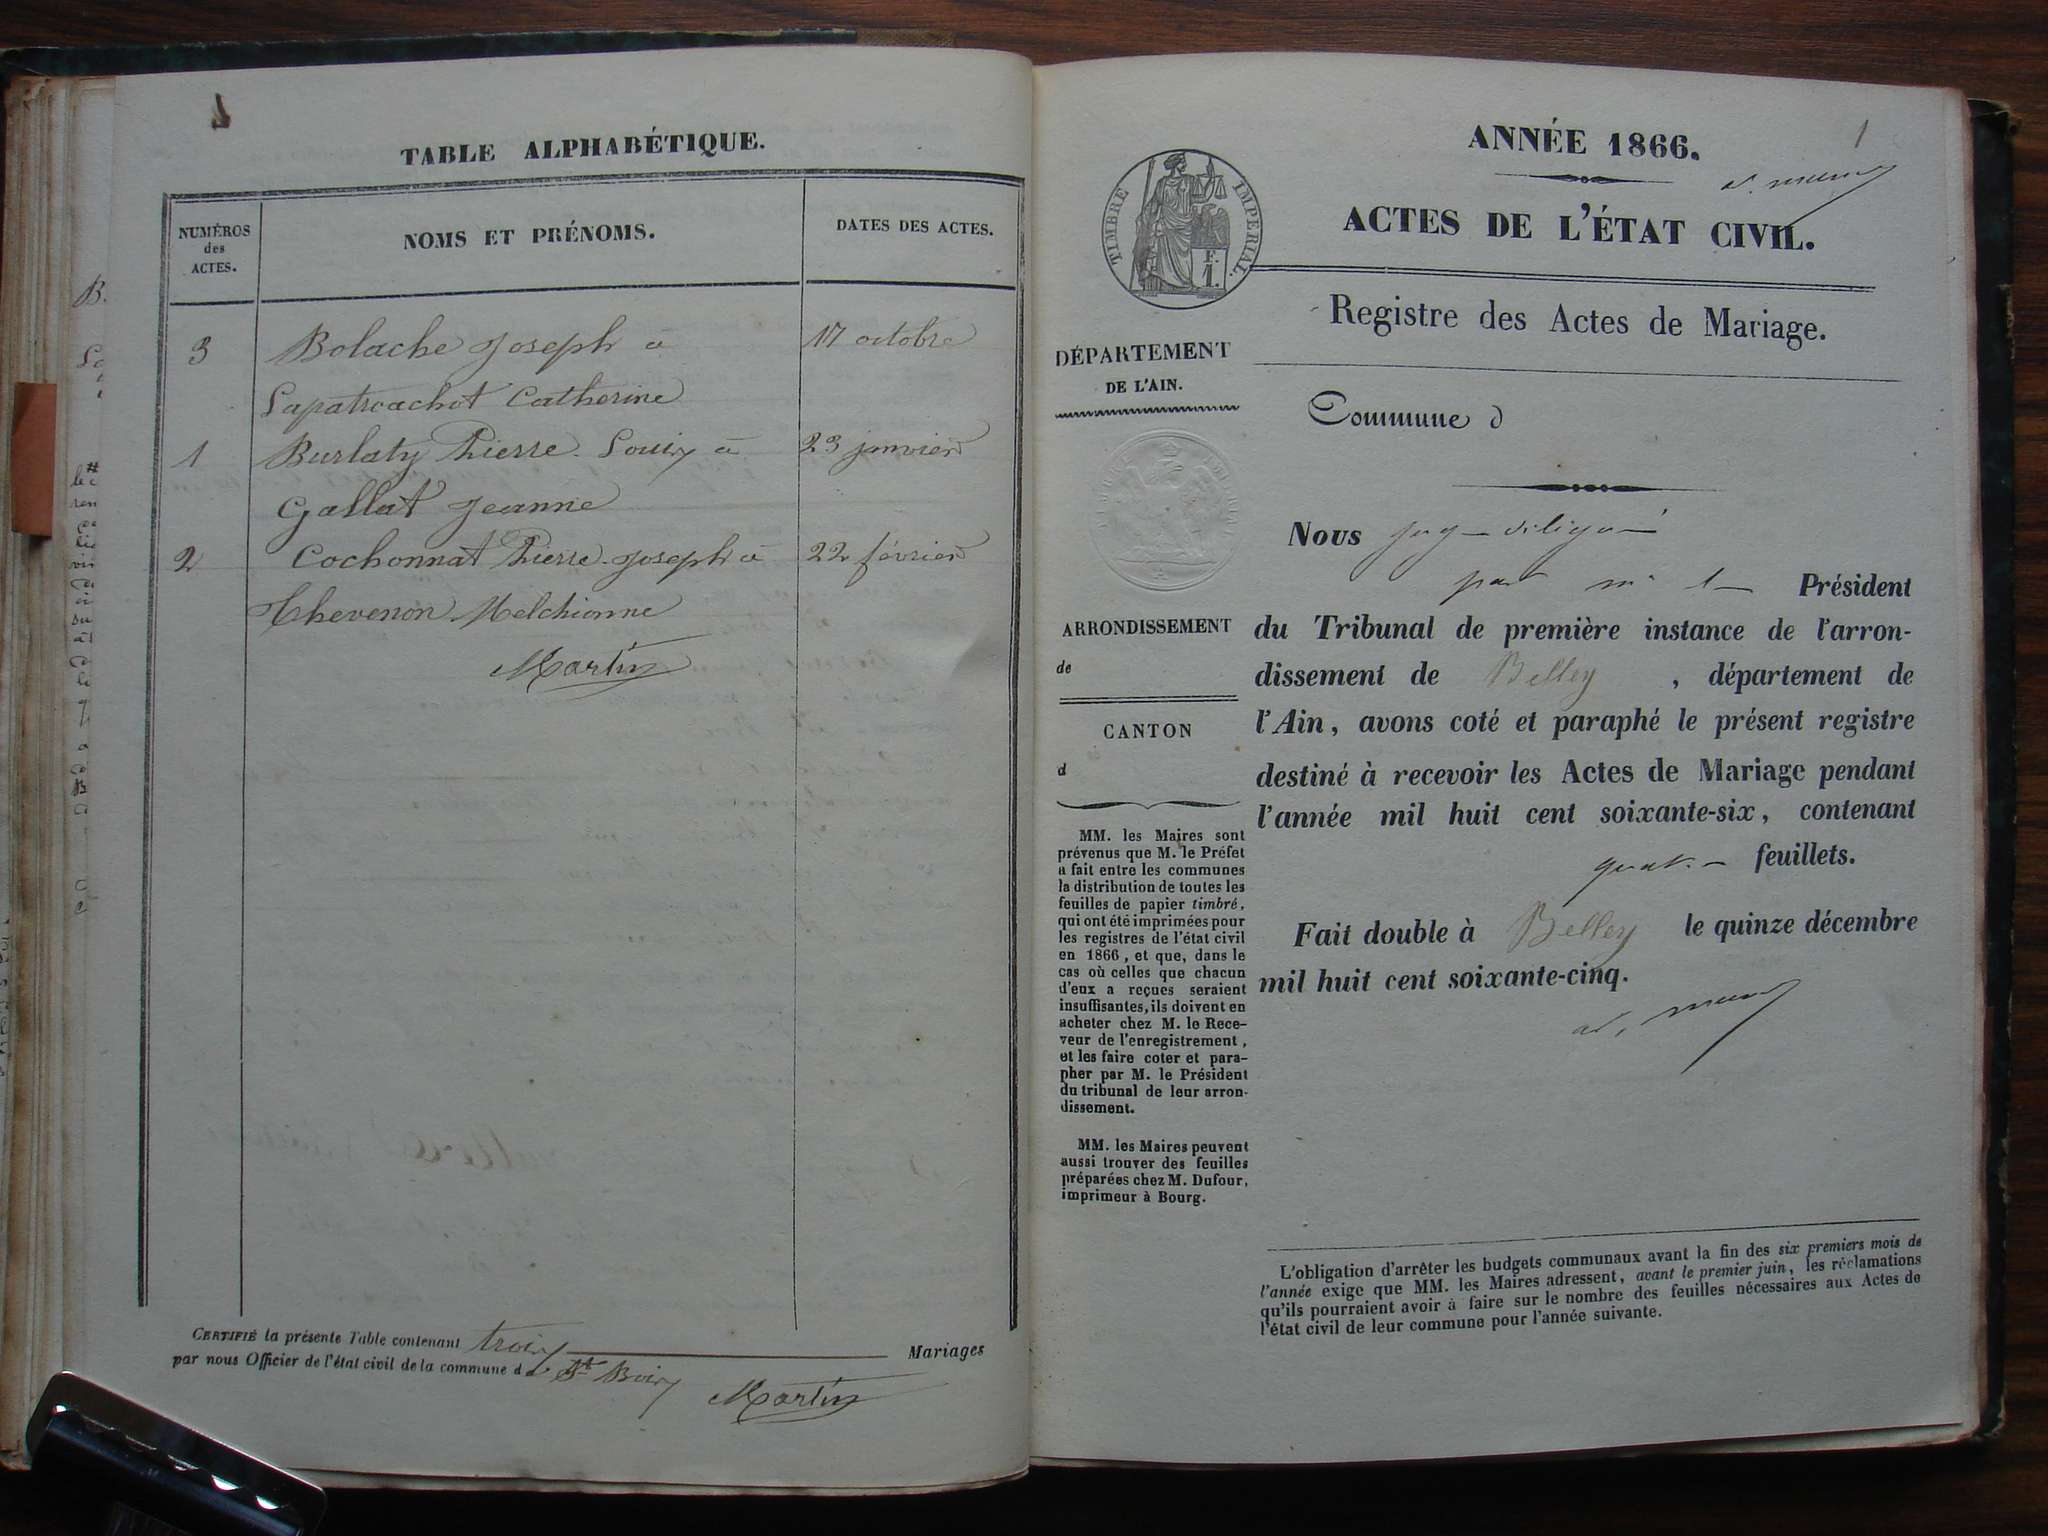 TABLE ALPHABÉTIQUE.
NUMÉROS
des
ACTES.
NOMS ET PRÉNOMS.
DATES DES ACTES.
3 Bolache Joseph à 17 octobre
Lapatrcachot Catherine
1 Burlaty Pierre Louis à 23 janvier
Gallat Jeanne
2 Cochonnat Pierre-Joseph à 22 février
Thevenon Melchionne
Martin
CERTIFIÉ la présente Table contenant trois Mariages
par nous Officier de l'état civil de la commune d de St Bois
Martin
1
ANNÉE 1866.
TIMBRE IMPERIAL.
F.
1.
ACTES DE L'ÉTAT CIVIL.
Registre des Actes de Mariage.
DÉPARTEMENT
DE L'AIN.
Commune d
ARRONDISSEMENT
de
CANTON
d
MM. les Maires sont
prévenus que M. le Préfet
a fait entre les communes
la distribution de toutes les
feuilles de papier timbré,
qui ont été imprimées pour
les registres de l'état civil
en 1866, et que, dans le
cas où celles que chacun
d'eux a reçues seraient
insuffisantes, ils doivent en
acheter chez M. le Rece-
veur de l'enregistrement,
et les faire coter et para-
pher par M. le Président
du tribunal de leur arron-
dissement.
MM. les Maires peuvent
aussi trouver des feuilles
préparées chez M. Dufour,
imprimeur à Bourg.
Nous juge délégué
par m. le Président
du Tribunal de première instance de l'arron-
dissement de Belley, département de
l'Ain, avons coté et paraphé le présent registre
destiné à recevoir les Actes de Mariage pendant
l'année mil huit cent soixante-six, contenant
quatre feuillets.
Fait double à Belley le quinze décembre
mil huit cent soixante-cinq.
L'obligation d'arrêter les budgets communaux avant la fin des six premiers mois de
l'année exige que MM. les Maires adressent, avant le premier juin, les réclamations
qu'ils pourraient avoir à faire sur le nombre des feuilles nécessaires aux Actes de
l'état civil de leur commune pour l'année suivante.